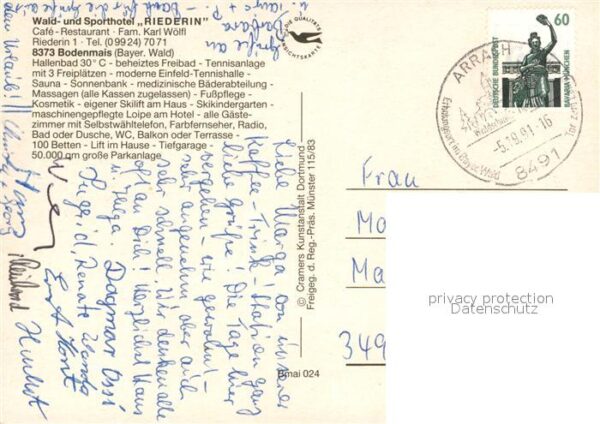 Wald- und Sporthotel „RIEDERIN"
Café - Restaurant · Fam. Karl Wölfl
Riederin 1 · Tel. (0 99 24) 70 71
8373 Bodenmais (Bayer. Wald)
Hallenbad 30° C - beheiztes Freibad - Tennisanlage
mit 3 Freiplätzen - moderne Einfeld-Tennishalle -
Sauna - Sonnenbank - medizinische Bäderabteilung -
Massagen (alle Kassen zugelassen) - Fußpflege -
Kosmetik - eigener Skilift am Haus - Skikindergarten -
maschinengepflegte Loipe am Hotel - alle Gäste-
zimmer mit Selbstwähltelefon, Farbfernseher, Radio,
Bad oder Dusche, WC, Balkon oder Terrasse -
100 Betten - Lift im Hause - Tiefgarage -
50.000 qm große Parkanlage
Liebe Marga! Von unserer
Kaffee-Trink-Station ganz
liebe Grüße! Die Tage hier
vergehen - wie gewohnt -
sehr angenehm aber auch
sehr schnell. Wir denken alle
oft an Dich! Herzlichst Hans
u. Helga. Dagmar Ossi
Ingrid, Renate
Grüße an
Barbara
© Cramers Kunstanstalt Dortmund
Freigeg. d. Reg.-Präs. Münster 115/83
Bmai 024
DIE QUALITÄTS
ANSICHTSKARTE
60
DEUTSCHE BUNDESPOST
BAVARIA MÜNCHEN
ARRACH
-5.19.91-16
8491
Frau
Ma
349
privacy protection
Datenschutz